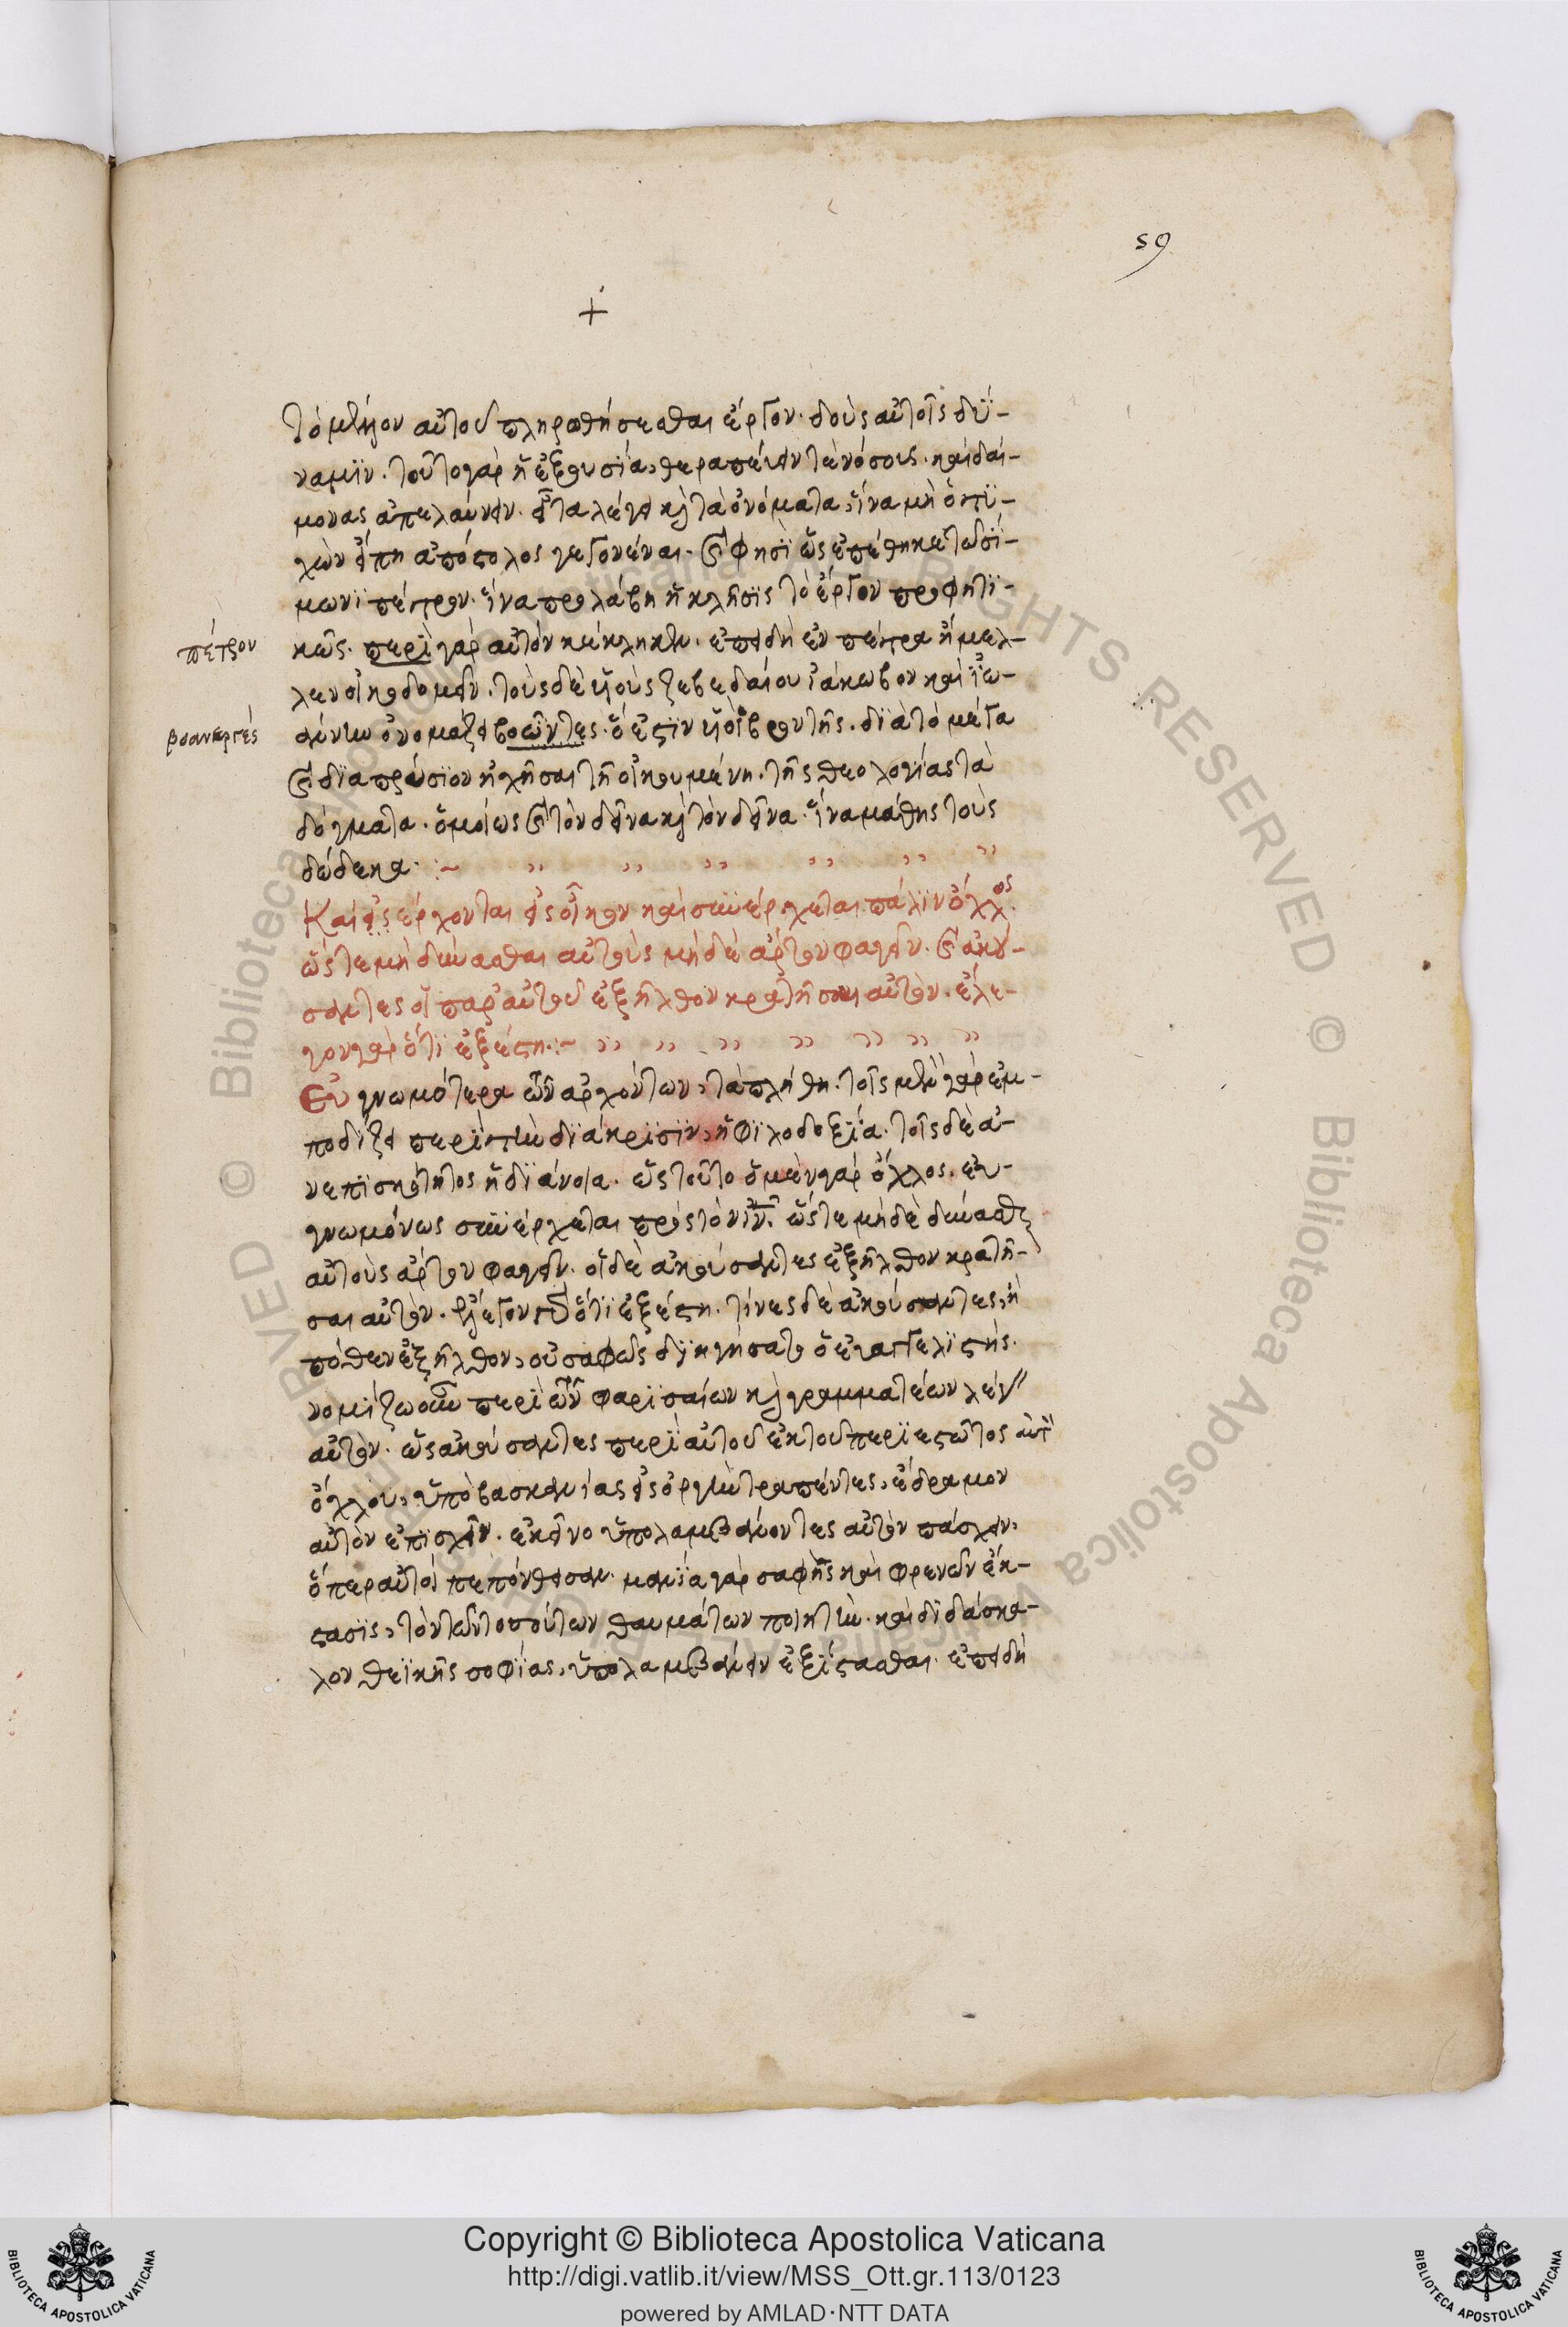 59
+
τὸ μέλλον αὐτοῦ πληρωθήσεσθαι ἔργον. δοὺς αὐτοῖς δύ-
ναμϊν. τοῦτο γὰρ ἡ ἐξουσία, θεραπεύειν τὲ νόσους. καὶ δαί-
μονας ἀπελαύνειν. εἶτα λέγει καὶ τὰ ὀνόματα, ἵνα μὴ ὁ τυ-
χὼν εἴπη ἀπόστολος γεγονέναι. καὶ φησὶ ὡς ἐπέθηκε τῶ σί-
μωνι πέτρον. ἵνα προλάβη ἡ κλῆσϊς τὸ ἔργον προφητϊ-
κῶς. περὶ γὰρ αὐτὸν κέκληκεν. ἐπειδὴ ἐν πέτρα ἤμελ-
πέτρον
λεν οἰκοδομεῖν. τοὺς δὲ υἱοὺς ζεβεδαίου ἰάκωβον καὶ ἰω-
άννην ὀνομάζει βοῶντες. ὅ ἐστϊν υἱοὶ βροντῆς. δϊὰ τὸ μέγα
βοανεργές
καὶ δϊαπρύσϊον ἠχῆσαι τῆ οἰκουμένη. τῆς θεολογίας τὰ
δόγματα. ὁμοίως καὶ τὸν δεῖνα καὶ τὸν δεῖνα. ἵνα μάθης τοὺς
δώδεκα :~
Καὶ εἰσέρχονται εἰς οἶκον καὶ συνέρχεται πάλϊν ὄχλος.
ὥστε μὴ δύνασθαι αὐτοὺς μηδὲ ἄρτον φαγεῖν. καὶ ἀκού-
σαντες οἱ παρ' αὐτοῦ ἐξῆλθον κρατῆσαι αὐτόν. ἔλε-
γον γὰρ ὅτϊ ἐξέστη :~
Εὐγνωμότερα τῶν ἀρχόντων, τὰ πλήθη. τοῖς μὲν γὰρ ἐμ-
ποδίζει περὶ τὴν δϊάκρϊσϊν, ἡ φϊλοδοξΐα. τοῖς δὲ ἀ-
νεπϊσκότητος ἡ δϊάνοια. ὡς τοῦτο ὁ μὲν γὰρ ὄχλος. εὐ-
γνωμόνως συνέρχεται πρὸς τὸν ἰν. ὥστε μηδὲ δύνασθαι
αὐτοὺς ἄρτον φαγεῖν. οἱ δὲ ἀκούσαντες ἐξῆλθον κρατῆ-
σαι αὐτόν. ἔλεγον γὰρ ὅτϊ ἐξέστη. τίνες δὲ ἀκούσαντες, ἢ
πόθεν ἐξῆλθον, οὐ σαφῶς διηγήσατο ὁ εὐαγγελϊστής.
νομίζω οὖν περὶ τῶν φαρϊσαίων καὶ γραμματέων λέγ
αὐτόν. ὡς ἀκούσαντες περὶ αὐτοῦ ἐκ τοῦ περϊεστῶτος αὐτ
ὄχλου, ὑπὸ βασκανίας εἰς ὀργὴν τραπέντες, ἔδραμον
αὐτὸν ἐπϊσχεῖν. ἐκεῖνο ὑπολαμβάνοντες αὐτὸν πάσχειν,
ὅπερ αὐτοὶ πεπόνθεισαν. μανία γὰρ σαφὴς καὶ φρενῶν ἔκ-
στασϊς, τὸν τῶν τοσούτων θαυμάτων ποιητὴν. καὶ διδάσκα-
λον θεϊκῆς σοφίας, ὑπολαμβάνειν ἐξΐστασθαι. ἐπειδὴ
Copyright © Biblioteca Apostolica Vaticana
http://digi.vatlib.it/view/MSS_Ott.gr.113/0123
powered by AMLAD·NTT DATA